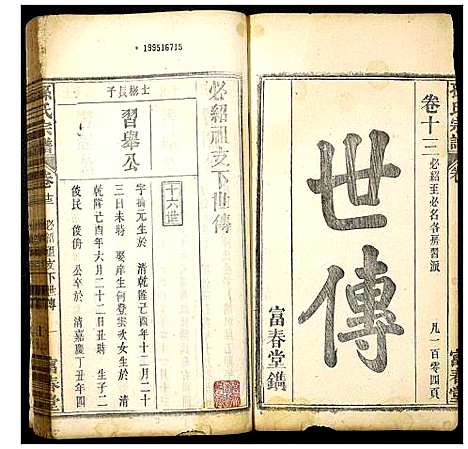 孫氏宗譜
卷十二 必紹至必名各房習派
世傳
凡一百零四頁
富春堂鐫
富春堂
199516715
必紹祖支下世傳
十六世
士楤長子
習舉公
字 元生於 清乾隆己酉年十二月二十
三日未時 娶庠生何登宋次女生於 清
乾隆己酉年六月二十二日丑時 生子二
俊民 俊儕 公卒於 清嘉慶丁丑年四
孫氏宗譜
卷十二
必紹祖支下世傳
一
富春堂